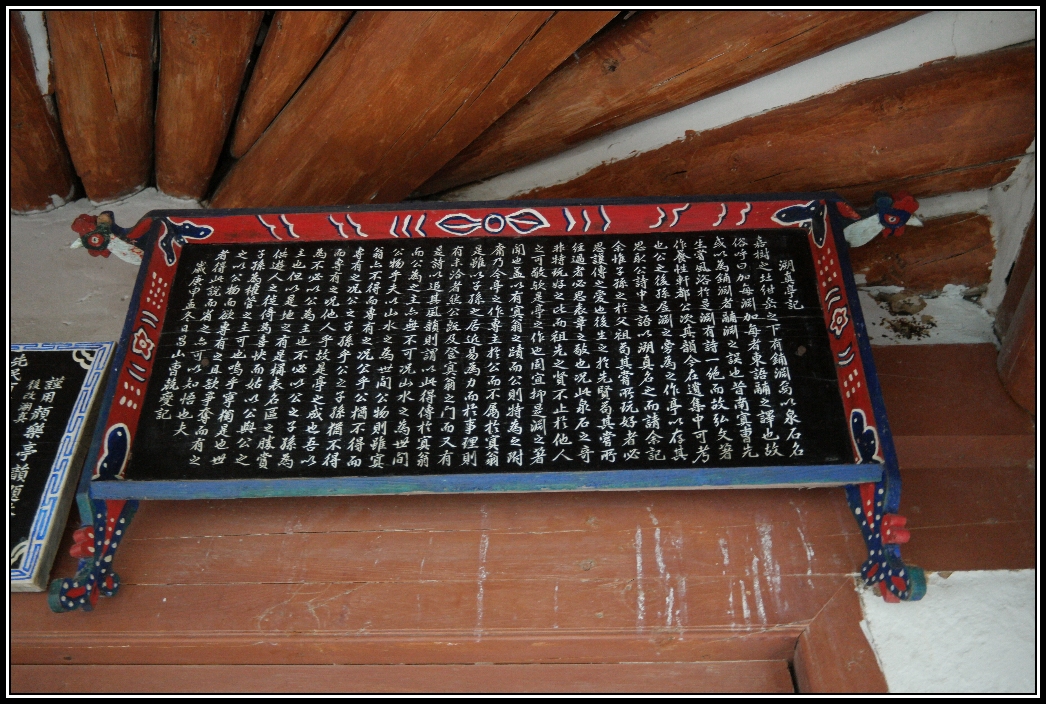 溯真亭記
嘉樹之杜紺岳之下有鋪淵焉以泉石名
俗呼曰加每淵加每者東語鬴之譯也故
或以為鋪淵者鬴淵之誤也昔南冥曺先
生甞風浴於是淵有詩一絶而故弘文著
作養性軒都公次其韻今在遺集中可考
也公之後孫淵之旁為之作亭以存其
思永公詩中之語以溯真名之而請余記
余惟子孫之於父祖苟其所玩好者必
思護傳之愛也後生之於先賢苟其甞所
經過者必思表章之敬也况此泉石之奇
非特玩好之比而祖先之賢不止於他人
之可敬歟是亭之作也固宜抑是淵之著
聞也盖以有冥翁之蹟而公則特為之附
庸乃今亭之作專主於公而不屬於冥翁
是雖以子孫之居近易為力而於事理則
有未洽者然公旣及登冥翁之門而又有
是詩以追其風韻則謂以此得傳於冥翁
而公為之主亦無不可况山水之為世間
公物乎夫以山水之為世間公物則雖冥
翁亦不得而專有之况公乎公猶不得而
專有之况公之子孫乎公之子孫猶不得
而專有之况他人乎故是亭之成也吾以
為不必以公為主也亦不必以公之子孫為
主也但以是地之有是構表名區之勝賞
供遊人之徙倚為喜快而姑以公與公之
子孫為權管之主可也嗚乎寧獨是也世
之以公物而欲專有之且欲爭奪而有之
者得此說而省之亦可以知悟也夫
歲庚午孟冬日昌山曺兢燮記
謹用頻樂亭韻題
後改溯真